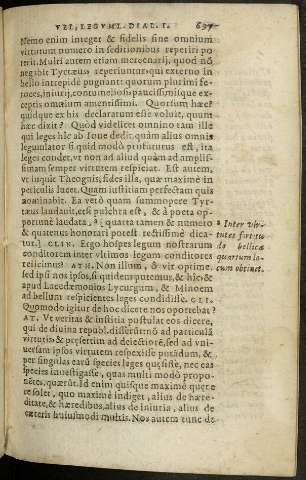 VEL, LEGVM. DIAL. I. 637
Nemo enim integer & fidelis sine omnium
virtutum numero in seditionibus reperiri po
terit. Multi autem etiam mercenarij, quod nō
negabit Tyrtæus reperiuntur qui externo in
bello intrepidè pugnant: quorum plurimi fe-
roces, iniurij, contumeliosi paucissimisque ex-
ceptis omnium amentissimi. Quorsum hæc?
quidque ex his declaratum esse voluit, quum
hæc dixit? Quòd videlicet omnino tam ille
qui leges hîc ab Ioue dedit, quàm alius omnis
legumlator si quid modò profuturus est, ita
leges condet, vt non ad aliud quàm ad amplis-
simam semper virtutem respiciat. Est autem,
vt inquit Theognis, fides illa, quæ maximè in
periculis lucet. Quam iustitiam perfectam quis
nominabit. Ea verò quam summopere Tyr-
tæus laudauit, etsi pulchra est, & à poeta op-
portunè laudata, * [ quarta tamen & numero
& quatenus honorari potest rectissimè dica-
tur.] CLIN. Ergo hospes legum nostrarum
conditorem inter vltimos legum conditores
reiicimus? ATH. Non illum, ô vir optime,
sed ipsi nos ipsos, si quidem putemus, & hîc &
apud Lacedæmonios Lycurgum, & Minoem
ad bellum respicientes leges condidisse. CLI.
Quomodo igitur de hoc dicere nos oportebat?
AT. Vt veritas & iustitia postulat eos dicere,
qui de diuina republ. disserūt nō ad particulā
virtutis & præsertim ad deiectiorē, sed ad vni-
uersam ipsos virtutem respexisse putādum, &
per singulas earū species leges quæsisse, nec eas
species inuestigasse, quas multi modò propo-
nētes, quærūt. Id enim quisque maximè quærere
solet, quo maximè indiget, alius de hære-
ditate, & hæredibus, alius de iniuria, alius de
cæteris huiusmodi multis. Nos autem tunc de
* Inter vir-
tutes fortitu
do bellica
quartum lo-
cum obtinet.